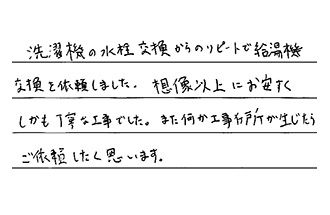 洗濯機の水栓交換からのリピートで給湯機
交換を依頼しました。想像以上にお安すく
しかも丁寧な工事でした。また何か工事箇所が生じたら
ご依頼したく思います。